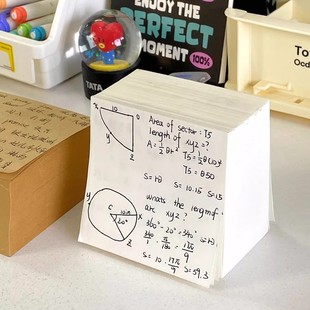 ENJOY THE
PERFECT
MOMENT
100%
TATA
To
Ocd
x 10 0
y
z
Area of sector : 75
length of xyz ?
A = 1/2 θr² 75 = 1/2 θ(10)²
75 = θ50
S = rθ S = 10 · 1.5 S = 15
y
C 10.19 x
20°
z
whats the length of
arc xyz ?
360° - 20° = 340°
340/1 · π/180 = 17π/9
S = 10 · 17π/9 S = 59.3